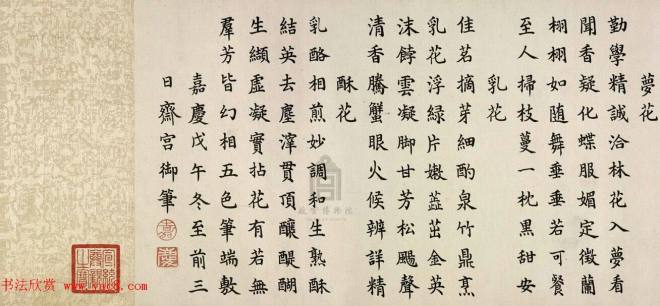 夢花
勤學精誠洽林花入夢看
聞香疑化蝶服媚定徵蘭
栩栩如随舞垂垂若可餐
至人掃枝蔓一枕黑甜安
乳花
佳茗摘芽細酌泉竹鼎烹
乳花浮綠片嫩蕋茁金英
沫餑雲凝脚甘芳松颺聲
清香騰蟹眼火候辨詳精
酥花
乳酪相煎妙調和生熟酥
結英去塵滓貫頂釀醍醐
生纈虛凝實拈花有若無
羣芳皆幻相五色筆端敷
嘉慶戊午冬至前三
日齋宮御筆
故宮博物院
书法欣赏